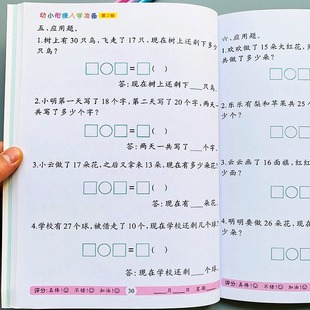 幼小衔接入学准备 第2辑
五、应用题。
1.树上有30只鸟,飞走了17只,现在树上还剩下多少
只鸟?
□○□=□( )
答:现在树上还剩下___只鸟。
2.小明第一天写了18个字,第二天写了20个字,两天一
共写了多少个字?
□○□=□( )
答:两天一共写了___个字。
3.小云做了17朵花,之后又拿来13朵,现在有多少朵花?
□○□=□( )
答:现在有___朵花。
4.学校有27个球,被借走了10个,现在学校还剩几个球?
□○□=□( )
答:现在学校还剩___个球。
评分:真棒! 不错! 加油!
30
___月___日 星期___
六、应用题。
1.欢欢做了15朵大红花,
2.乐乐有梨和苹果共25个
个?
3.云云画了16面旗,红
少面?
4.明明要做26朵花,现在
朵?
评分:真棒! 不错! 加油!